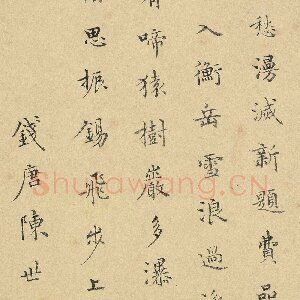 愁湧減新題費品
入衡岳雪浪過
啼猿樹嚴多瀑
思振錫飛步上
錢唐陳世
Shufawang.CN